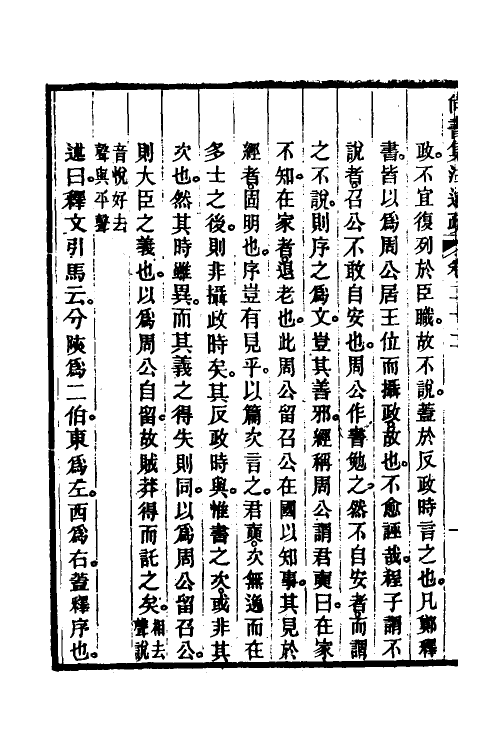 尚書集注述疏 卷二十二
政。不宜復列於臣職。故不說。蓋於反政時言之也。凡鄭釋
書。皆以爲周公居王位而攝政故也。不愈誣哉。程子謂不
說者。召公不敢自安也。周公作書勉之。然不自安者。而謂
之不說。則序之爲文。豈其善邪。經稱周公謂君奭曰。在家
不知。在家者。退老也。此周公留召公在國以知事。其見於
經者。固明也。序豈有見乎。以篇次言之。君奭。次無逸而在
多士之後。則非攝政時矣。其反政時與。惟書之次。或非其
次也。然其時雖異。而其義之得失則同。以爲周公留召公。
則大臣之義也。以爲周公自留。故賊莽得而託之矣。相去聲說
音悅好去聲與平聲
述曰。釋文引馬云。分陝爲二伯。東爲左。西爲右。蓋釋序也。